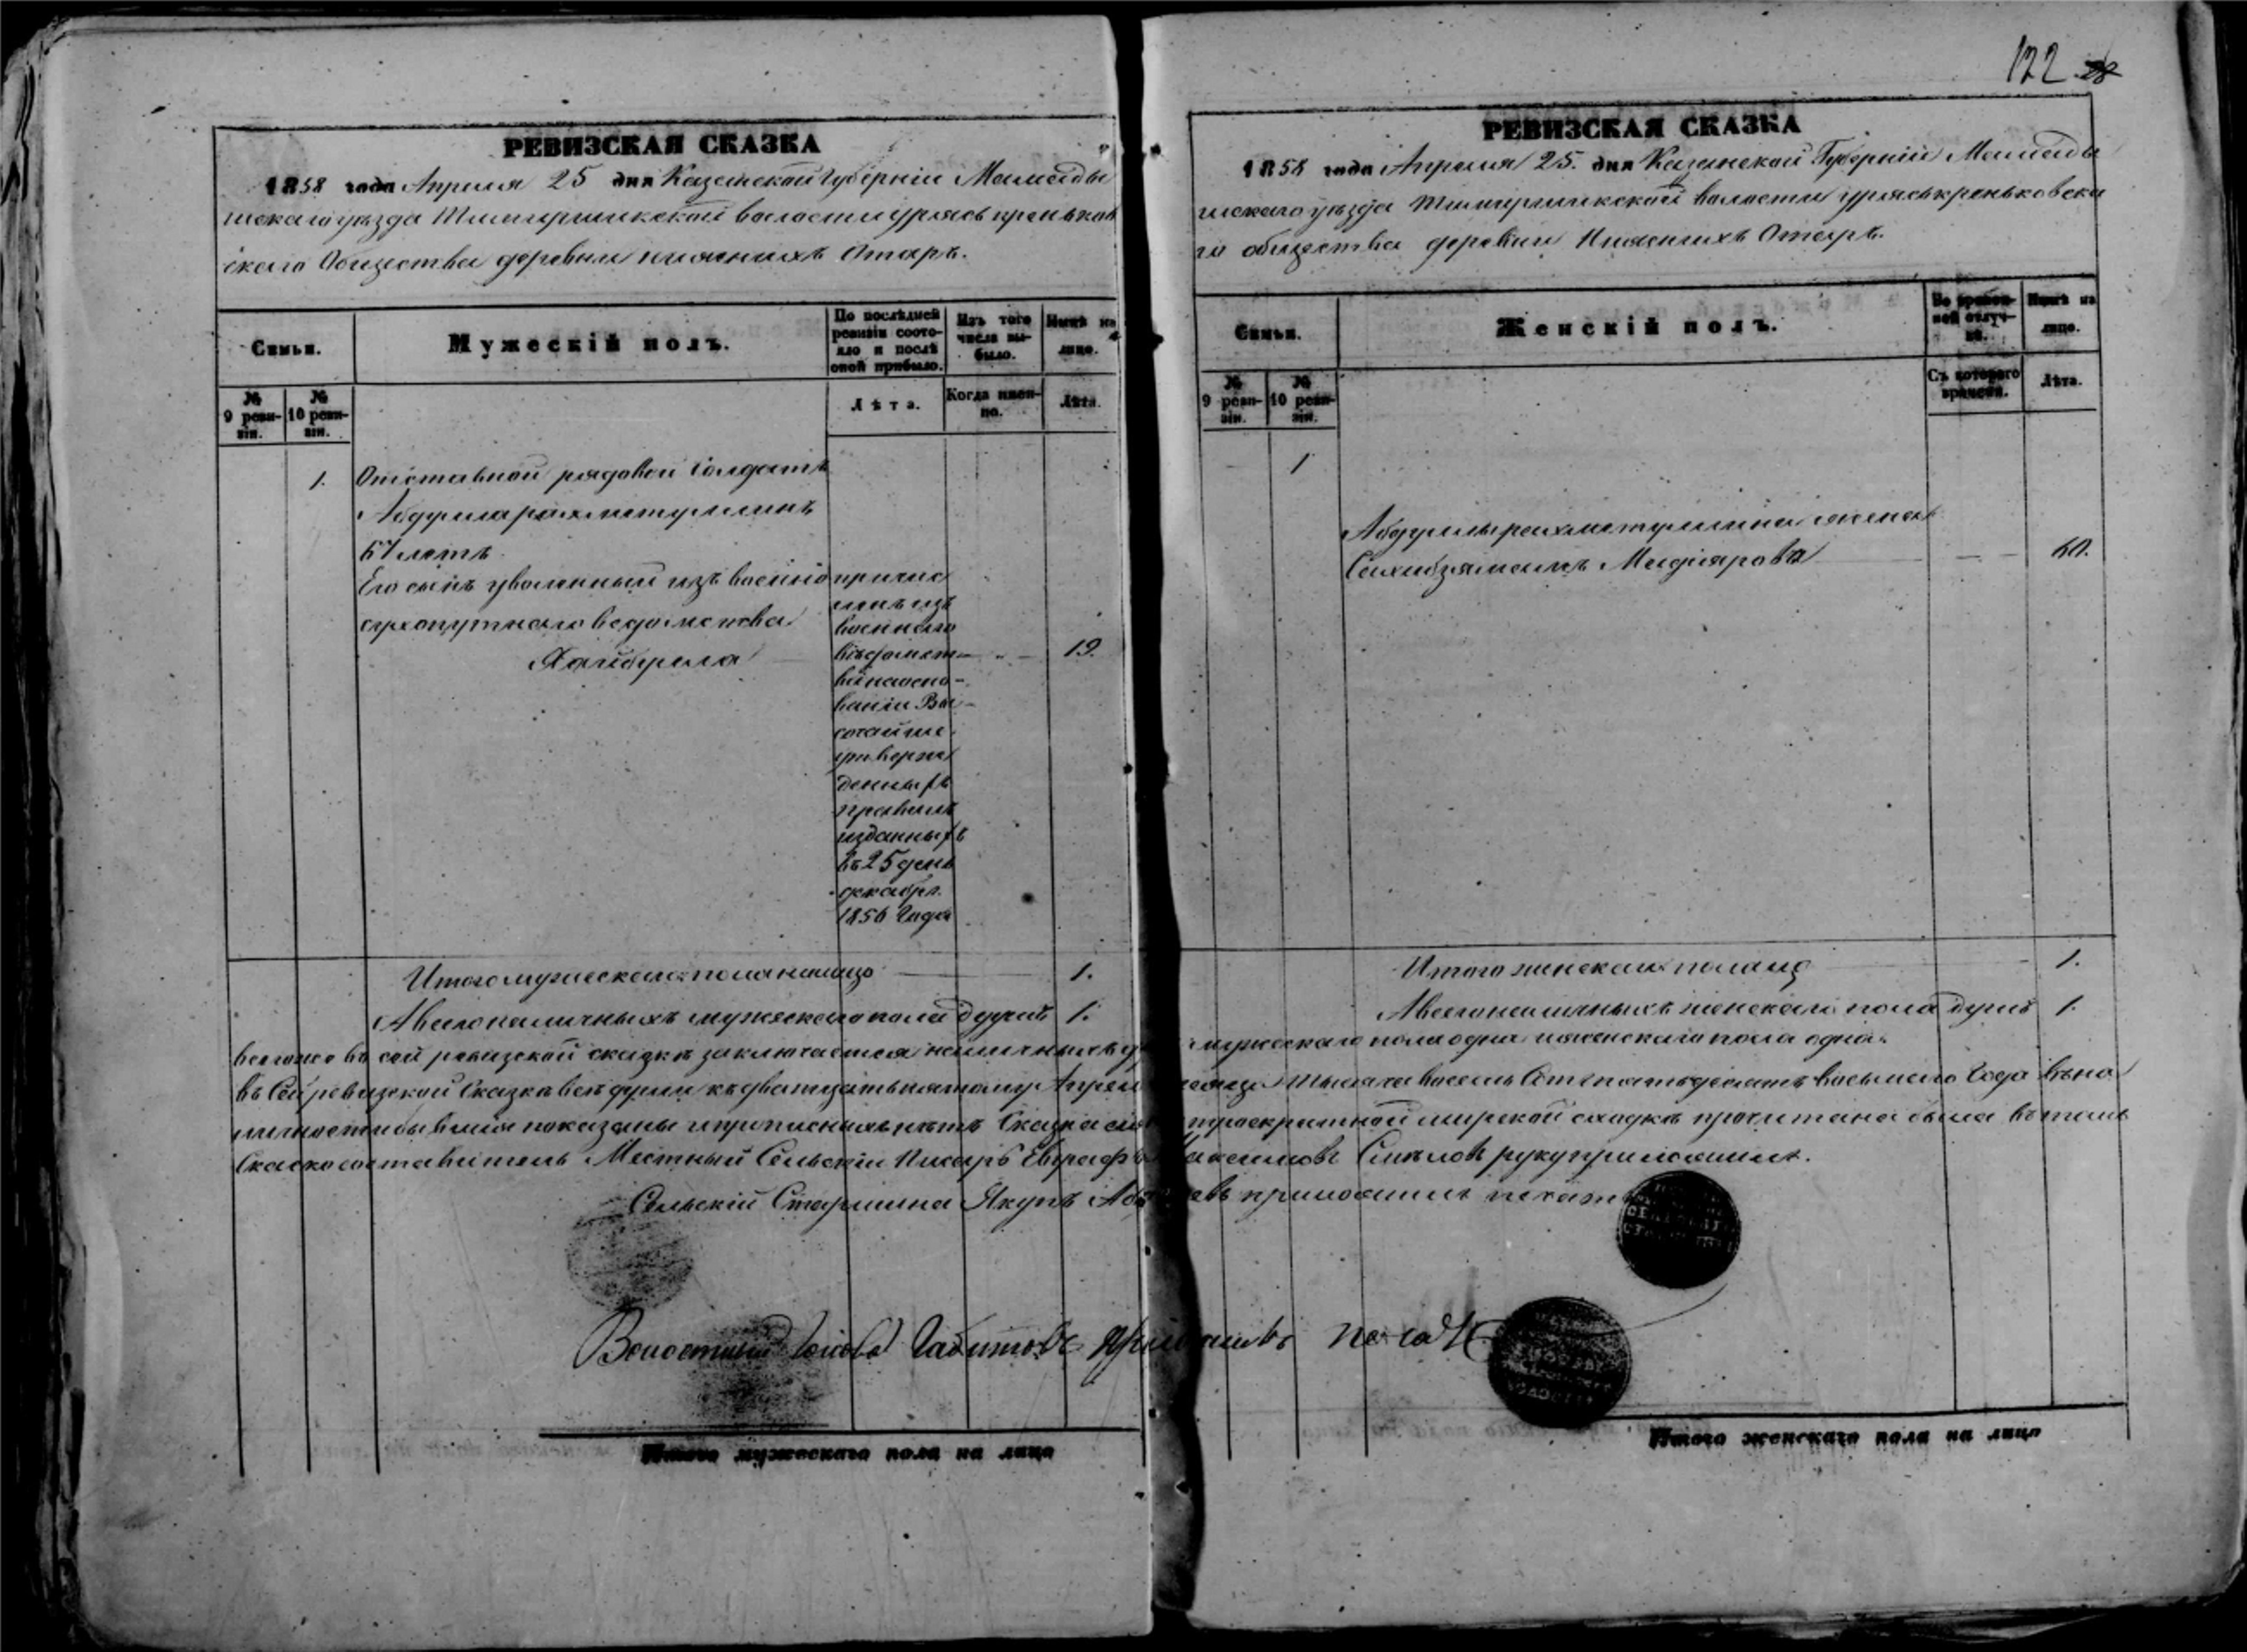 122
РЕВИЗСКАЯ СКАЗКА
1858 года Апреля 25 дня Казанской Губерніи Мамады
шскаго уезда Тимиршикской валости урясь креньков
скаго Общества деревни нижнихъ Отаръ.
Семьи.
Мужескій полъ.
По послѣдней ревизіи состояло и послѣ оной прибыло.
Изъ того числа выбыло.
Нынѣ на лицо.
№ 9 ревизіи.
№ 10 ревизіи.
Лѣта.
Когда именно.
Лѣта.
1. Отставной рядовой Солдатъ
Абдулла рахметуллинъ
67 летъ
Его сынъ уволенный изъ военно
сухопутнаго ведомства
Хайбулла 19.
причис
ленъ изъ
военнаго
вѣдомст-
ва на осно-
ваніи Вы-
сочайше
утверж
денныхъ
правилъ
изданныхъ
въ 25 день
декабря
1856 Года
Итого мужескаго пола на лицо 1.
А всего наличныхъ мужескаго пола душъ 1.
РЕВИЗСКАЯ СКАЗКА
1858 года Апреля 25. дня Казанской Губерніи Мамады
шскаго уезда Тимиршикской валости урясь креньковска
го общества деревни Нижнихъ Отаръ.
Семьи.
Женскій полъ.
Во временной отлучкѣ.
Нынѣ на лицо.
№ 9 ревизіи.
№ 10 ревизіи.
Съ котораго времени.
Лѣта.
1
Абдуллы рахметуллина жена
Сахибзямалъ Мидіярова 60.
Итого женскаго пола 1.
А всего наличныхъ женскаго пола душъ 1.
всего же въ сей ревизской сказке заключается наличныхъ мужескаго пола одна и женскаго пола одна.
въ Сей ревизской Сказке все души къ двадцать пятому Апреля тысяча восемь Сотъ пятьдесятъ восьмаго Года въ на
личности бывшія показаны и прописныхъ нетъ Сказка сія мирской сходке прочитана была въ томъ
Сказкосоставитель Местный Сельскій Писарь Евграфъ руку приложилъ.
Сельскій Старшина Якупъ приложилъ печать
Волостный Голова Габитовъ приложилъ печать
Итого мужескаго пола на лицо
Итого женскаго пола на лицо